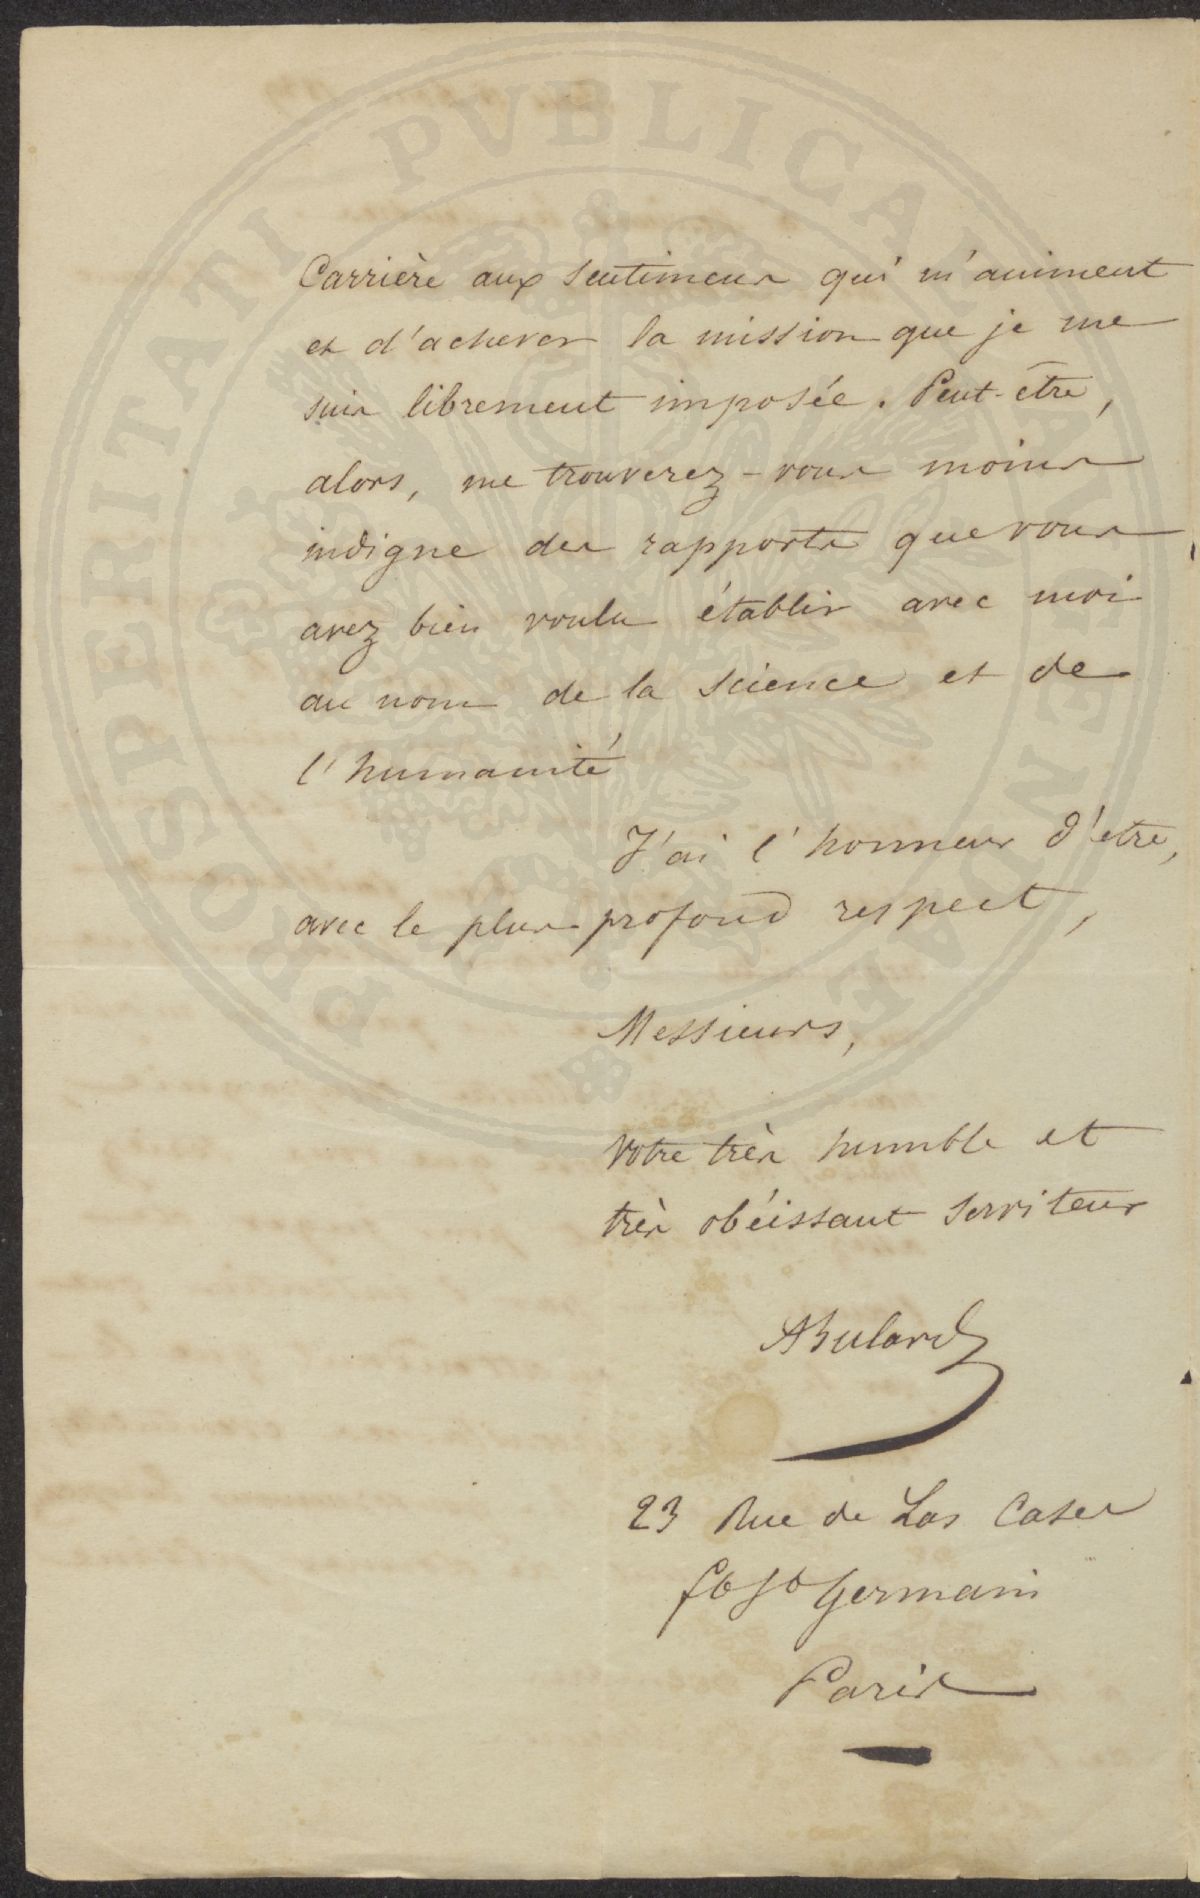 PROSPERITATI PVBLICAE AVGENDAE
Carrière aux sentimens qui m'animent
et d'achever la mission que je me
suis librement imposée. Peut-être,
alors, me trouverez-vous moins
indigne des rapports que vous
avez bien voulu établir avec moi
au nom de la science et de
l'humanité
J'ai l'honneur d'etre,
avec le plus profond respect,
Messieurs,
Votre très humble et
très obéissant serviteur
ABulard
23 Rue de Las Cases
fb St Germain
Paris